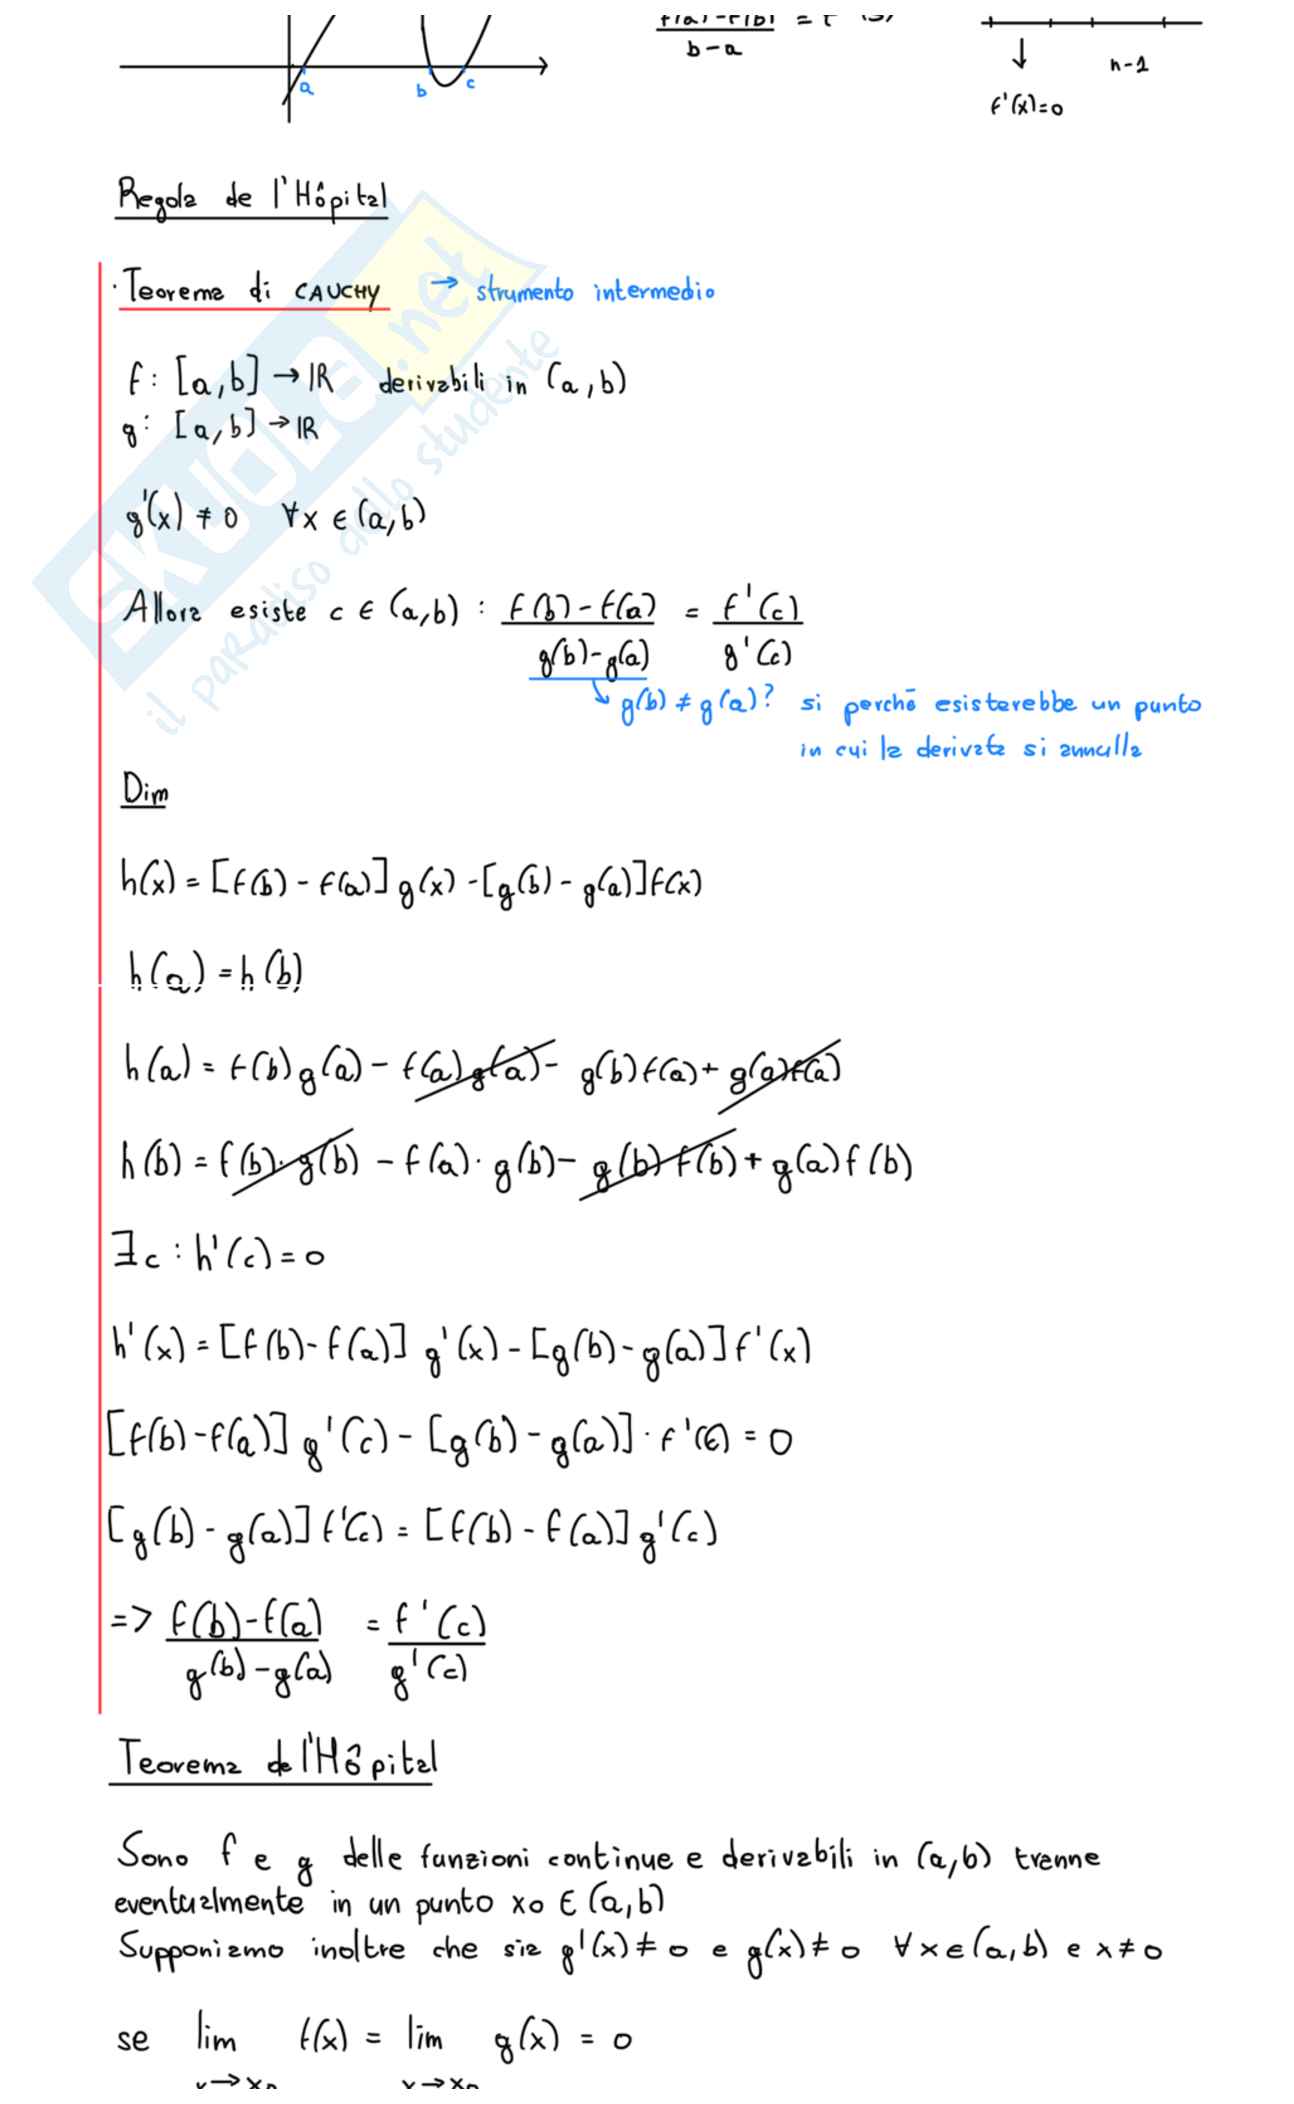 a b c
b-a
n-1
f'(x)=0
Regola de l'Hôpital
· Teorema di CAUCHY → strumento intermedio
f: [a,b] → IR derivabili in (a,b)
g: [a,b] → IR
g'(x) ≠ 0 ∀x ∈ (a,b)
Allora esiste c ∈ (a,b) : f(b)-f(a) = f'(c)
g(b)-g(a) g'(c)
g(b) ≠ g(a)? si perché esisterebbe un punto
in cui la derivata si annulla
Dim
h(x) = [f(b) - f(a)] g(x) - [g(b) - g(a)] f(x)
h(a) = h(b)
h(a) = f(b) g(a) - f(a) g(a) - g(b) f(a) + g(a) f(a)
h(b) = f(b) · g(b) - f(a) · g(b) - g(b) f(b) + g(a) f(b)
∃c : h'(c) = 0
h'(x) = [f(b) - f(a)] g'(x) - [g(b) - g(a)] f'(x)
[f(b) - f(a)] g'(c) - [g(b) - g(a)] · f'(c) = 0
[g(b) - g(a)] f'(c) = [f(b) - f(a)] g'(c)
=> f(b)-f(a) = f'(c)
g(b)-g(a) g'(c)
Teorema de l'Hôpital
Sono f e g delle funzioni continue e derivabili in (a,b) tranne
eventualmente in un punto x0 ∈ (a,b)
Supponiamo inoltre che sia g'(x) ≠ 0 e g(x) ≠ 0 ∀x ∈ (a,b) e x ≠ 0
se lim f(x) = lim g(x) = 0
x→x0 x→x0
SKUOLA.net
il paradiso dello studente